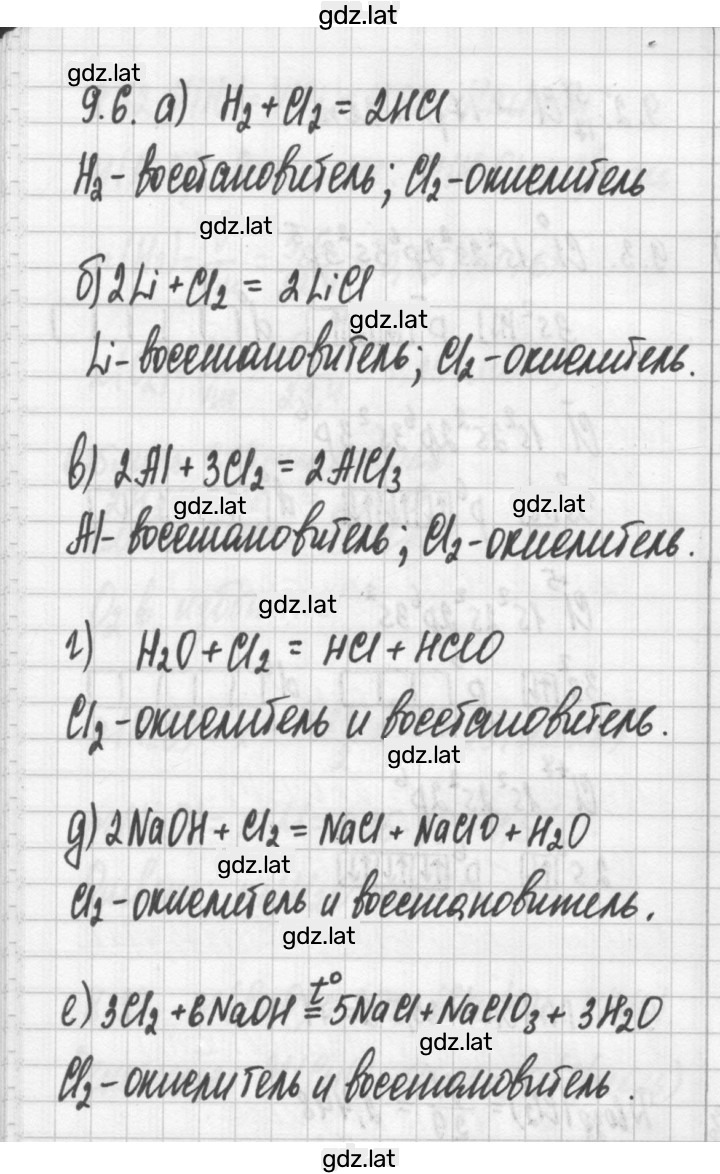 gdz.lat
gdz.lat
9.6. а) H₂ + Cl₂ = 2HCl
H₂ - восстановитель; Cl₂ - окислитель
gdz.lat
б) 2Li + Cl₂ = 2LiCl
gdz.lat
Li - восстановитель; Cl₂ - окислитель.
в) 2Al + 3Cl₂ = 2AlCl₃
gdz.lat gdz.lat
Al - восстановитель; Cl₂ - окислитель.
gdz.lat
г) H₂O + Cl₂ = HCl + HClO
Cl₂ - окислитель и восстановитель.
gdz.lat
д) 2NaOH + Cl₂ = NaCl + NaClO + H₂O
gdz.lat
Cl₂ - окислитель и восстановитель.
gdz.lat
е) 3Cl₂ + 6NaOH =(t°) 5NaCl + NaClO₃ + 3H₂O
gdz.lat
Cl₂ - окислитель и восстановитель.
gdz.lat